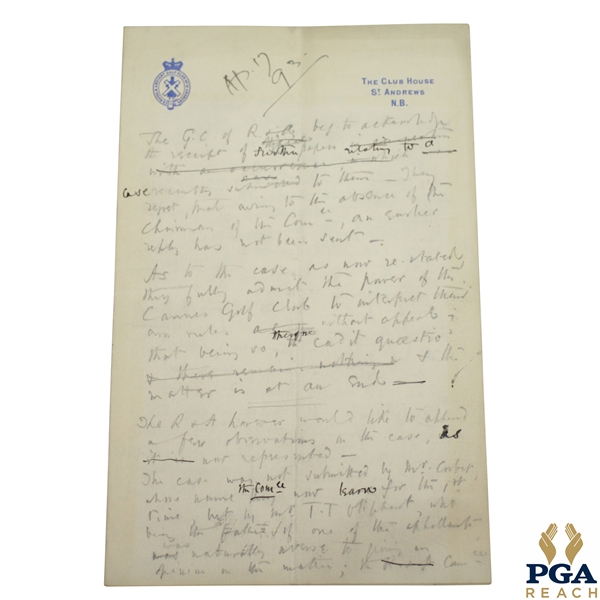 THE CLUB HOUSE
ST ANDREWS
N.B.
The G.C of R & A beg to acknowledge
the receipt of further papers relating to a
case recently submitted to them – They
regret, that owing to the absence of the
Chairman of the Comee –, an earlier
reply has not been sent –
As to the case, as now re-stated,
they fully admit the power of the
Cannes Golf Club to interpret their
own rules without appeal;
that being so, therefore cadit quaestio
& there remains nothing & the
matter is at an end –
The R & A however would like to append
a few observations on the case, as
it is now represented –
The case was not submitted by Mr.
whose name the Comee now learn for the 1st
time but by Mr T.T Oliphant, who
being the father of one of the appellants
was naturally averse to giving an
opinion on the matter; the Comee
PGA
REACH